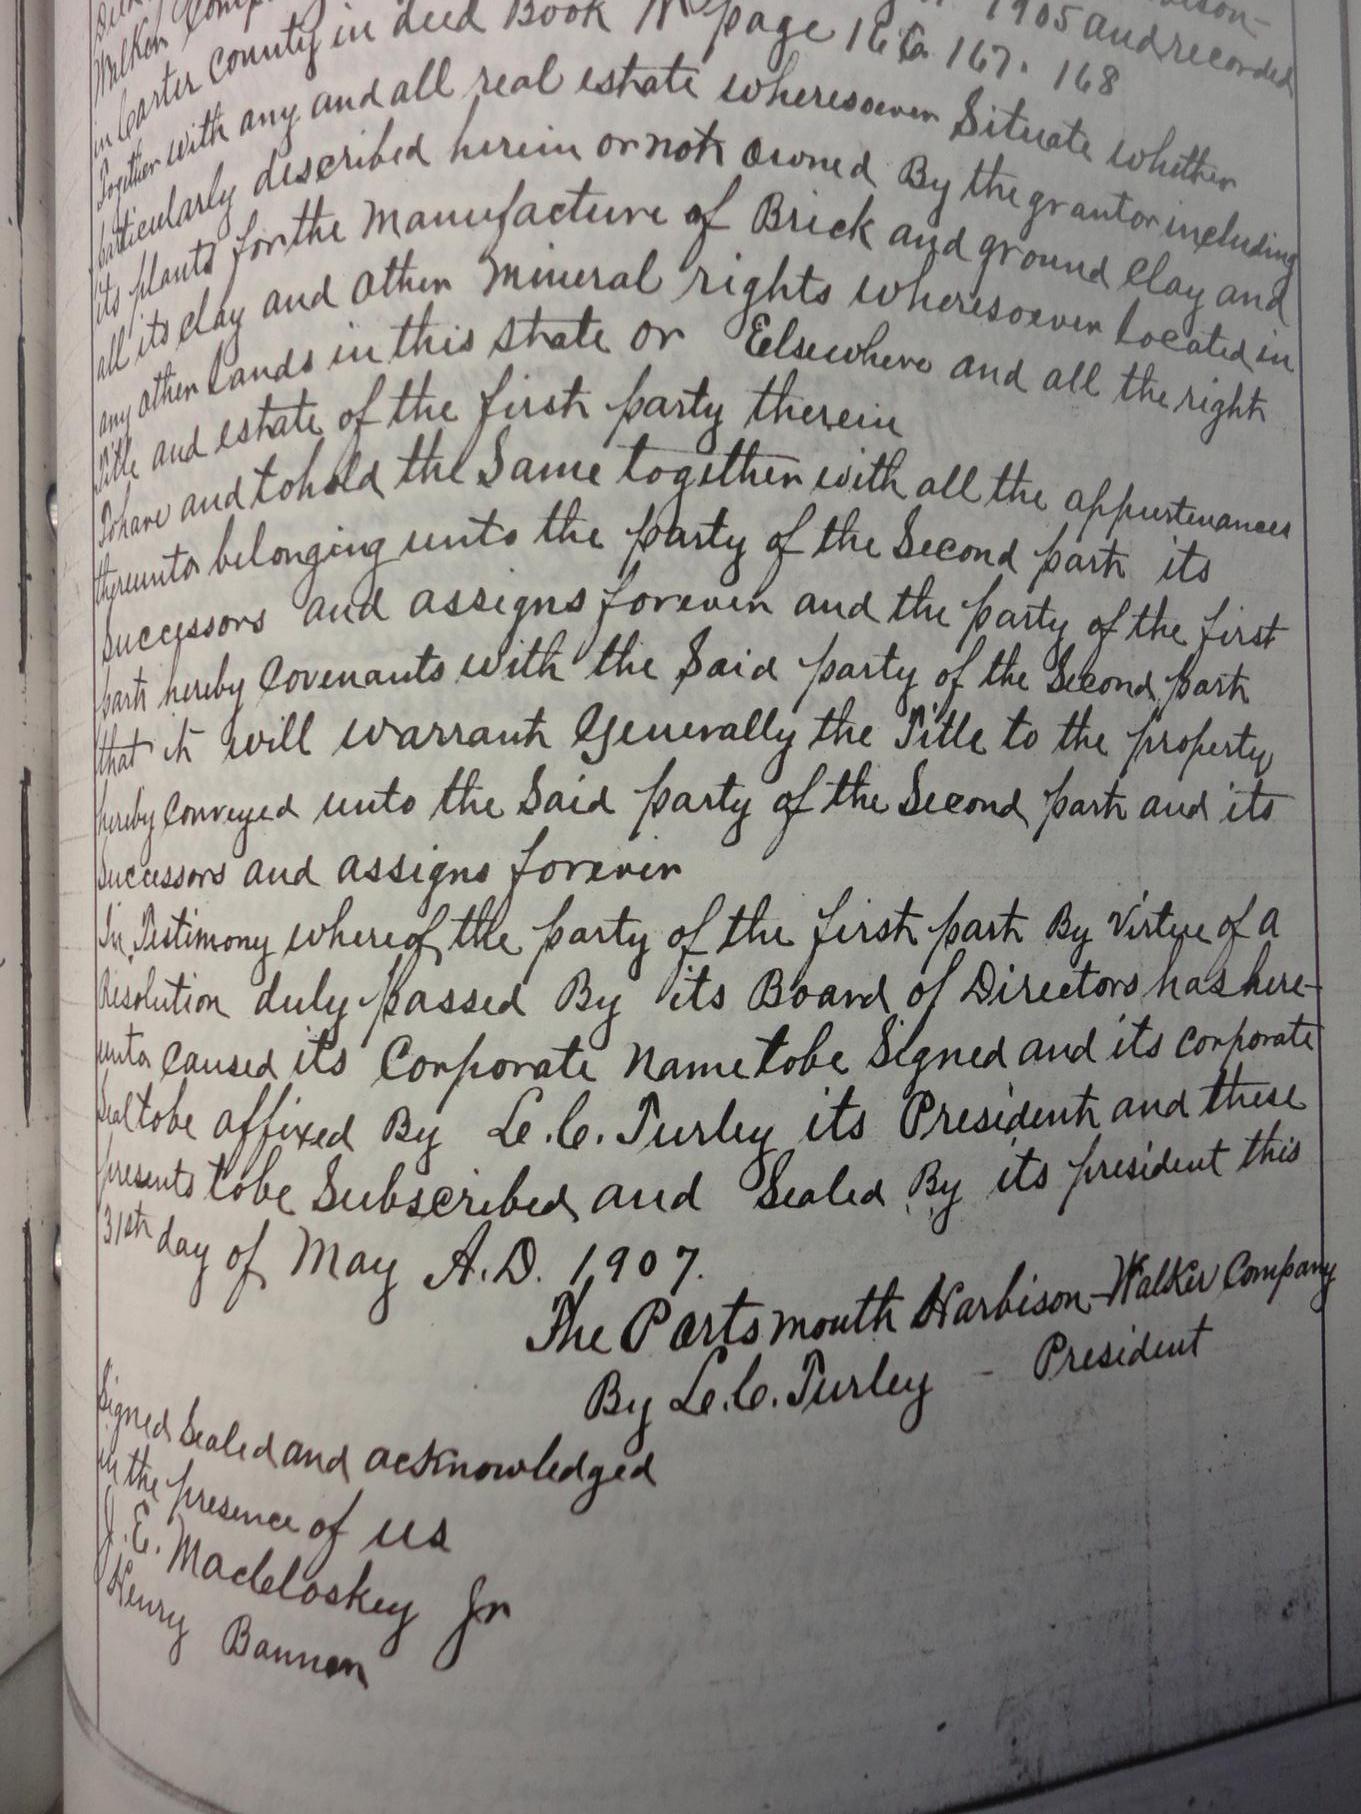 Walker Comp
1905 and recorded
in Carter County in deed Book page 166. 167. 168
Together with any and all real estate wheresoever Situate whether
particularly described herein or not owned By the grantor including
its plants for the Manufacture of Brick and ground Clay and
all its clay and other Mineral rights wheresoever Located in
any other Lands in this state or Eelsewhere and all the right
Title and estate of the first party therein
To have and to hold the Same together with all the appurtenances
thereunto belonging unto the party of the Second part its
Successors and assigns forever and the party of the first
part hereby Covenants with the Said party of the Second part
that it will warrant Generally the Title to the property
hereby Conveyed unto the Said party of the Second part and its
Successors and assigns forever
In Testimony whereof the party of the first part By Virtue of a
Resolution duly passed By its Board of Directors has here-
unto Caused its Corporate Name to be Signed and its corporate
Seal to be affixed By L.C. Turley its President and these
presents to be Subscribed and Sealed By its president this
31st day of May A.D. 1907.
The Portsmouth Harbison-Walker Company
By L.C. Turley - President
Signed Sealed and acknowledged
in the presence of us
J.E. Maccloskey Jr
Henry Bannon